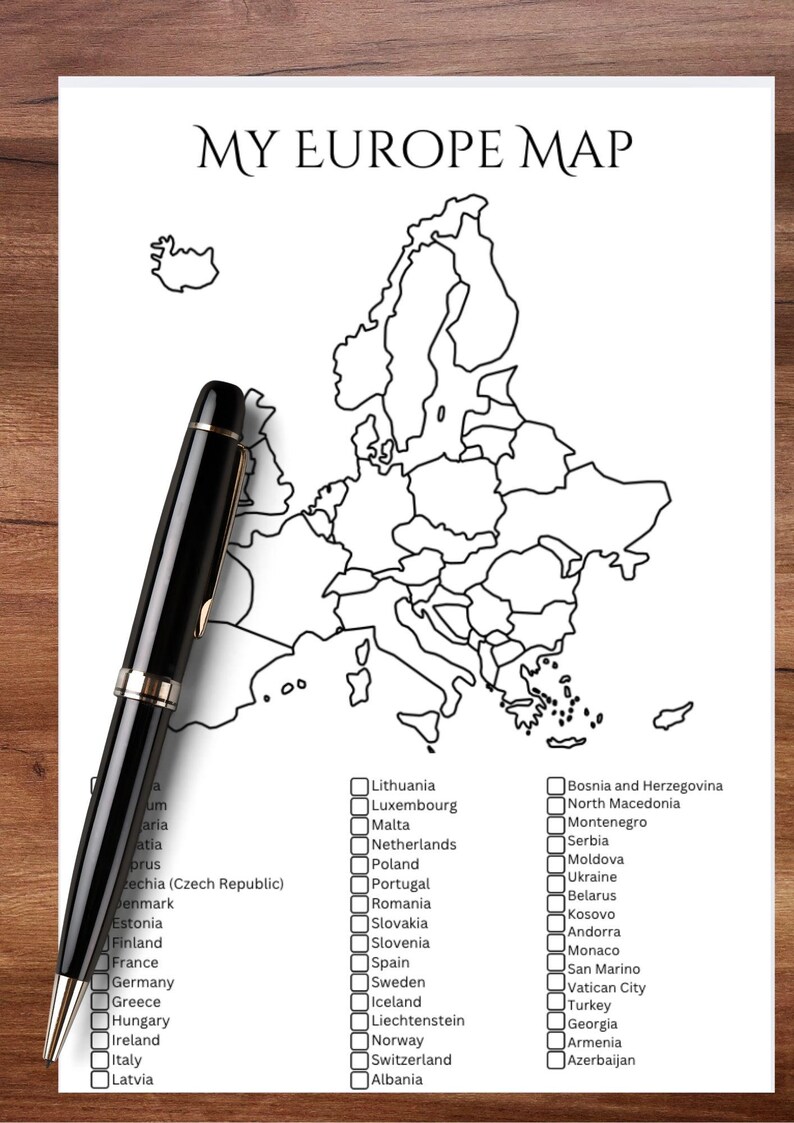 MY EUROPE MAP
um
garia
atia
prus
zechia (Czech Republic)
Denmark
Estonia
Finland
France
Germany
Greece
Hungary
Ireland
Italy
Latvia
Lithuania
Luxembourg
Malta
Netherlands
Poland
Portugal
Romania
Slovakia
Slovenia
Spain
Sweden
Iceland
Liechtenstein
Norway
Switzerland
Albania
Bosnia and Herzegovina
North Macedonia
Montenegro
Serbia
Moldova
Ukraine
Belarus
Kosovo
Andorra
Monaco
San Marino
Vatican City
Turkey
Georgia
Armenia
Azerbaijan